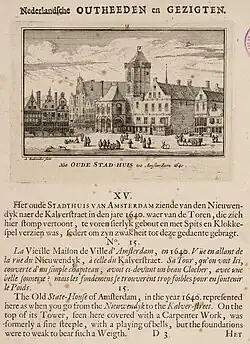 Nederlandsche OUTHEEDEN en GEZIGTEN.
Het OUDE STAD-HUIS tot Amsterdam 1640.
XV.
Het oude STADTHUIS VAN AMSTERDAM ziende van den Nieuwen-
dyk naer de Kalverstraet in den jare 1640. waer van de Toren, die zich
hier stomp vertoont, te voren sierlyk gebout en met Spits en Klokke-
spel verzien was, sedert om zyn zwakheit tot deze gedaente gebragt.
N°. 15.
La Vieille Maison de Ville d'Amsterdam, en 1640. Vüe en allant de
la rue du Nieuwendyk, à celle du Kalverstraet. Sa Tour, qu'on voit Ici,
couverte d'un simple chapiteau, avoit ci-devint un beau Clocher, avec u-
ne belle sonnerie: mais les fondemens se trouverent trop foibles pour en soutenir
le Poids.
15.
The Old State-House of Amsterdam, in the year 1640. represented
here as when you go from the Nieuwendyk to the Kalver-street. On the
top of its Tower, seen here covered with a Carpenter Work, was
formerly a fine steeple, with a playing of bells, but the foundations
were to weak to bear such a Weigth.
D 3
HET